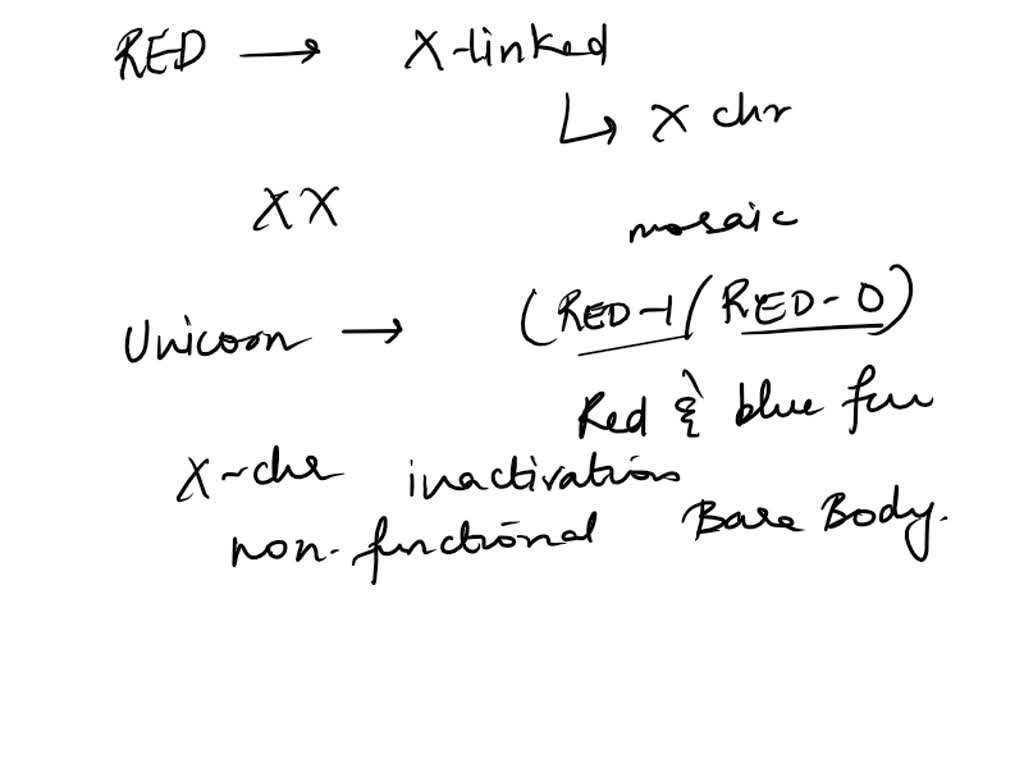 RED → X-linked
↳ X chr
XX
mosaic
Unicorn → (RED-1/RED-0)
Red & blue fur
X-chr inactivation
non-functional Bare Body.